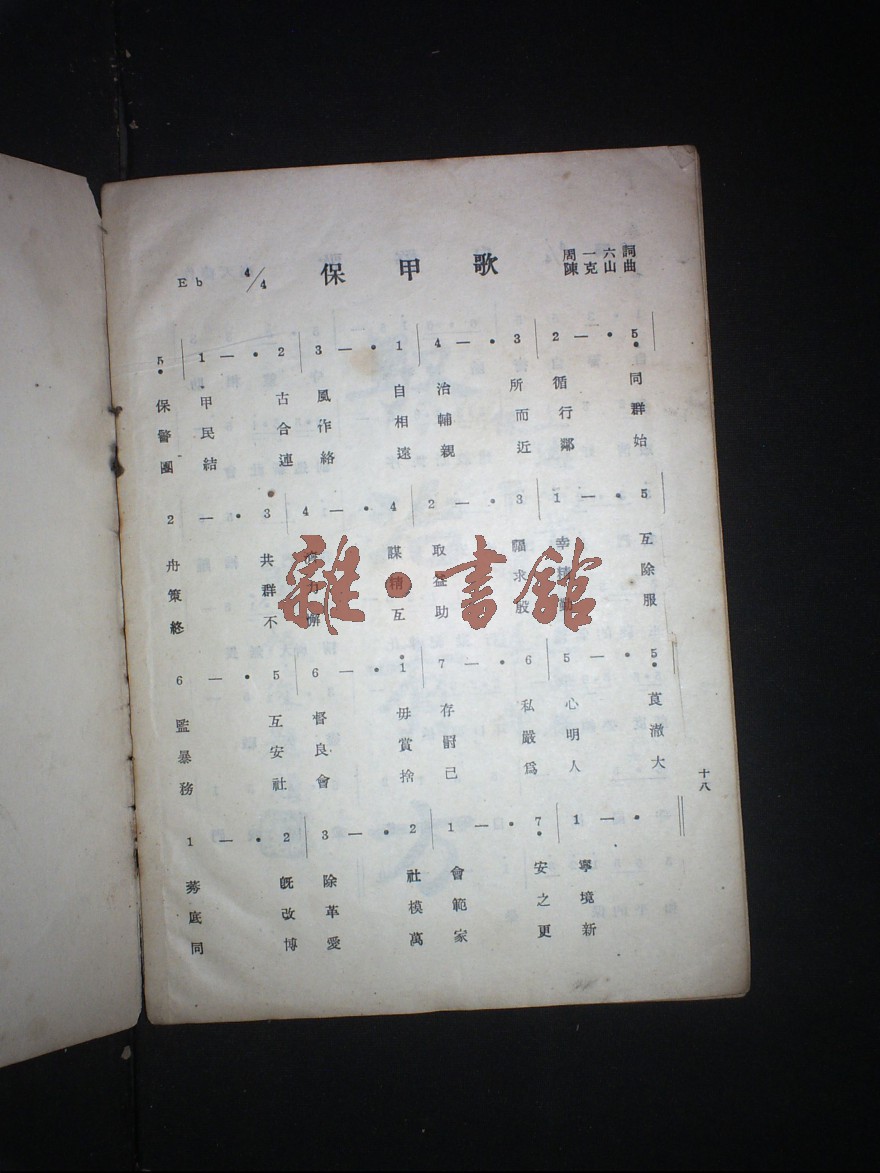 Eb 4/4 保甲歌 周一六詞
陳克山曲
5 | 1 — • 2 | 3 — • 1 | 4 — • 3 | 2 — • 5 |
保甲古風自治所循同
警民合作相輔而行群
團結連絡遠親近鄰始
2 — • 3 | 4 — • 4 | 2 — • 3 | 1 — • 5 |
舟共謀取福幸互
策群力精益求精除
終不懈互助殷勤服
6 — • 5 | 6 — • 1 | 7 — • 6 | 5 — • 5 |
監互督毋存私心莨
暴安良賞罸嚴明澈
務社會捨己爲人大
1 — • 2 | 3 — • 2 | 1 — • 7 | 1 — • ‖
莠既除社會安寧
底改革模範之境
同博愛萬家更新
十八
雜·書館